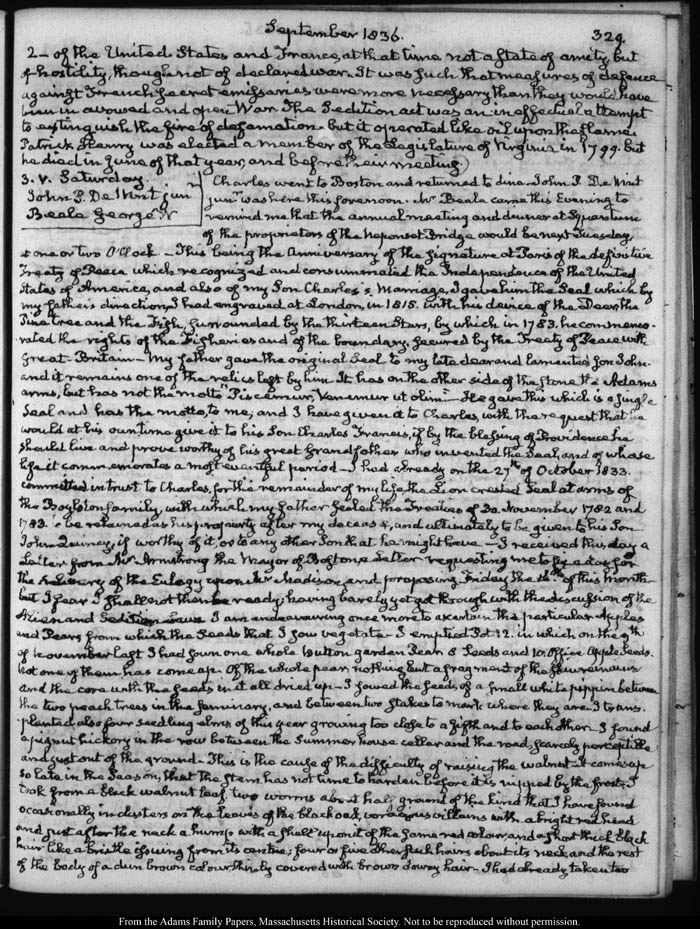 September 1836. 329.
2- of the United States and France, at that time not a state of amity, but
of hostility, though not of declared war. It was such that measures of defence
against French secret emissaries were more necessary than they would have
been in avowed and open War. The Sedition act was an ineffectual attempt
to extinguish the fire of defamation. but it operated like oil upon the flame.
Patrick Henry was elected a member of the Legislature of Virginia in 1799. but
he died in June of that year, and before their meeting)
3. V. Saturday.
John P. De Wint jun
Beale George W
Charles went to Boston and returned to dine. John P. De Wint
junr was here this forenoon. Mr Beale came this Evening to
remind me that the annual meeting and dinner at Squantum
of the proprietors of the Neponset Bridge would be next Tuesday
at one or two O'Clock - This being the Anniversary of the signature at Paris of the definitive
Treaty of Peace which recognized and consummated the Independence of the United
States of America, and also of my Son Charles's Marriage, I gave him the Seal which by
my father's direction, I had engraved at London, in 1815. with his device of the Deer, the
Pine tree and the Fish, surrounded by the thirteen Stars, by which in 1783. he commemo-
rated the rights of the Fisheries and of the boundary, secured by the Treaty of Peace with
Great-Britain - My father gave the original Seal to my late dear and lamented Son John.
and it remains one of the relics left by him. It has on the other side of the stone the Adams
arms, but has not the motto "Piscemur, Venemur ut olim" - He gave this which is a single
Seal and has the motto, to me, and I have given it to Charles, with the request that he
would at his own time give it to his Son Charles Francis, if by the blessing of Providence he
should live and prove worthy of his great Grandfather who invented the Seal, and of whose
life it commemorates a most eventful period - I had already on the 27th of October 1833.
committed in trust to Charles, for the remainder of my life, the Lion crested Seal at arms of
the Boylston family, with which my father sealed the Treaties of 30. November 1782 and
1783. to be retained as his property after my decease, and ultimately to be given to his Son
John-Quincy, if worthy of it, or to any other Son that he might have - I received this day a
Letter from Mr Armstrong the Mayor of Boston a Letter requesting me to fix a day for
the delivery of the Eulogy upon Mr Madison, and proposing Friday the 16th of this Month
but I fear I shall not then be ready; having barely yet got through with the discussion of the
Alien and Sedition Laws I am endeavouring once more to ascertain the particular Apples
and Pears from which the Seeds that I sow vegetate - I emptied Pot 12. in which on the 9th
of November last I had sown one whole Button garden Pear 8 Seeds and 10. Office Apple Seeds.
Not one of them has come up. Of the whole pear nothing but a fragment of the skin remains
and the core with the seeds in it all dried up - I sowed the seeds of a small white pippin between
the two peach trees in the seminary, and between two stakes to mark where they are. I trans-
planted also four seedling elms of this year growing too close to a fifth and to each other - I found
a pignut hickory in the row between the Summer house cellar and the road, scarcely perceptible
and just out of the ground - This is the cause of the difficulty of raising the walnut. It comes up
so late in the Season, that the stem has not time to harden before it is nipped by the frost. I
took from a black walnut leaf two worms about half grown of the kind that I have found
occasionally in clusters on the leaves of the black oak, voracious villains with a bright red head
and just after the neck a hump with a out of the same red colour, and a short thick black
hair like a bristle issuing from its centre; four or five other such hairs about its neck, and the rest
of the body of a dun brown colour thinly covered with brown downy hair - I had already taken two
From the Adams Family Papers, Massachusetts Historical Society. Not to be reproduced without permission.